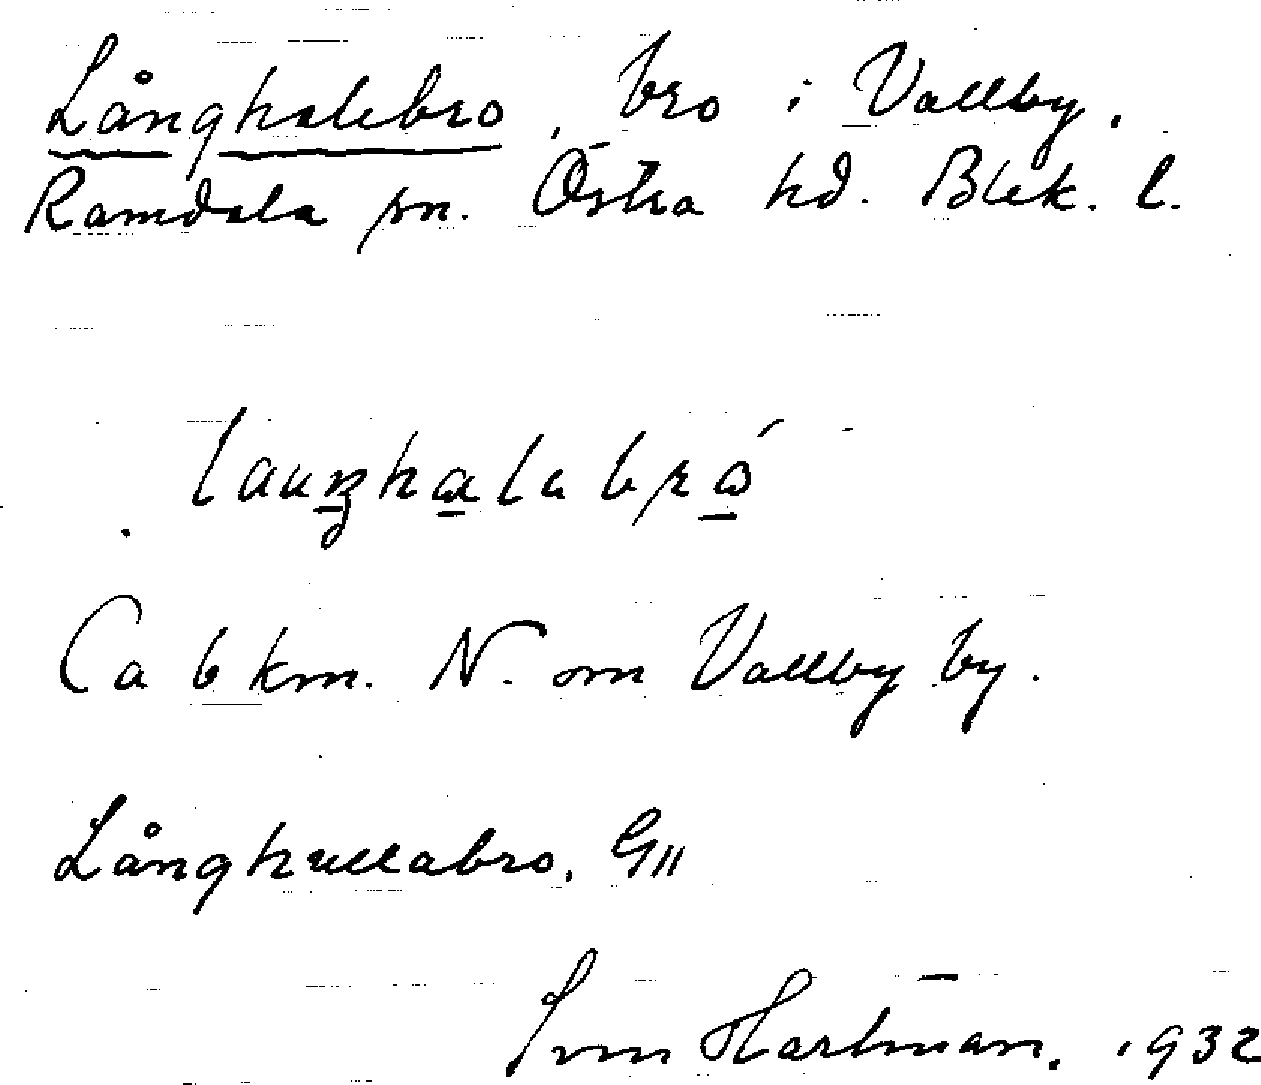 Långhalebro, bro i Vallby,
Ramdala sn. Östra hd. Blek. l.
Ca 6 km. N. om Vallby by.
Långhullabro, GII
Hartman. 1932